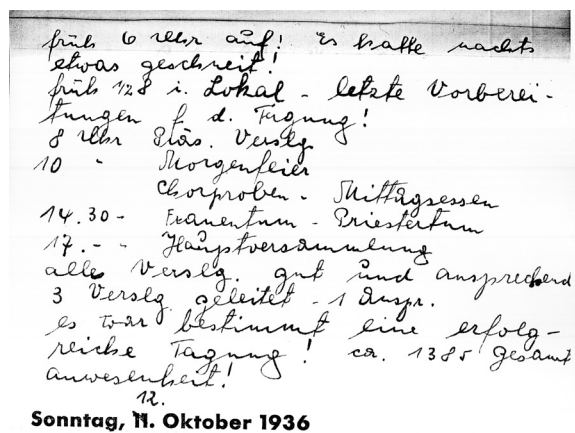 früh 6 Uhr auf! Es hatte nachts
etwas geschneit!
früh 1/28 i. Lokal - letzte Vorberei-
tungen f. d. Tagung!
8 Uhr Präs. Verslg.
10 " Morgenfeier
Chorproben - Mittagsessen
14.30 - Frauentum - Priestertum
17. - " Hauptversammlung
alle Verslg. gut und ansprechend
3 Verslg geleitet - 1 Anspr.
es war bestimmt eine erfolg-
reiche Tagung! ca. 1385 Gesamt
anwesenheit!
12.
Sonntag, 11. Oktober 1936